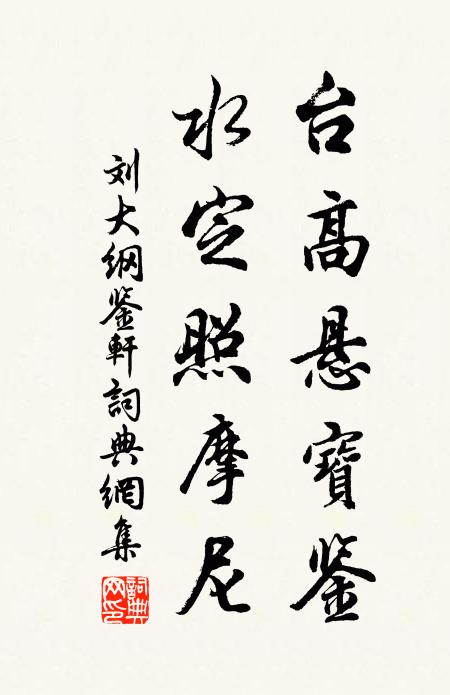 台高悬寶鉴
水定照摩尼
刘大纲鉴軒詞典網集
詞典網印